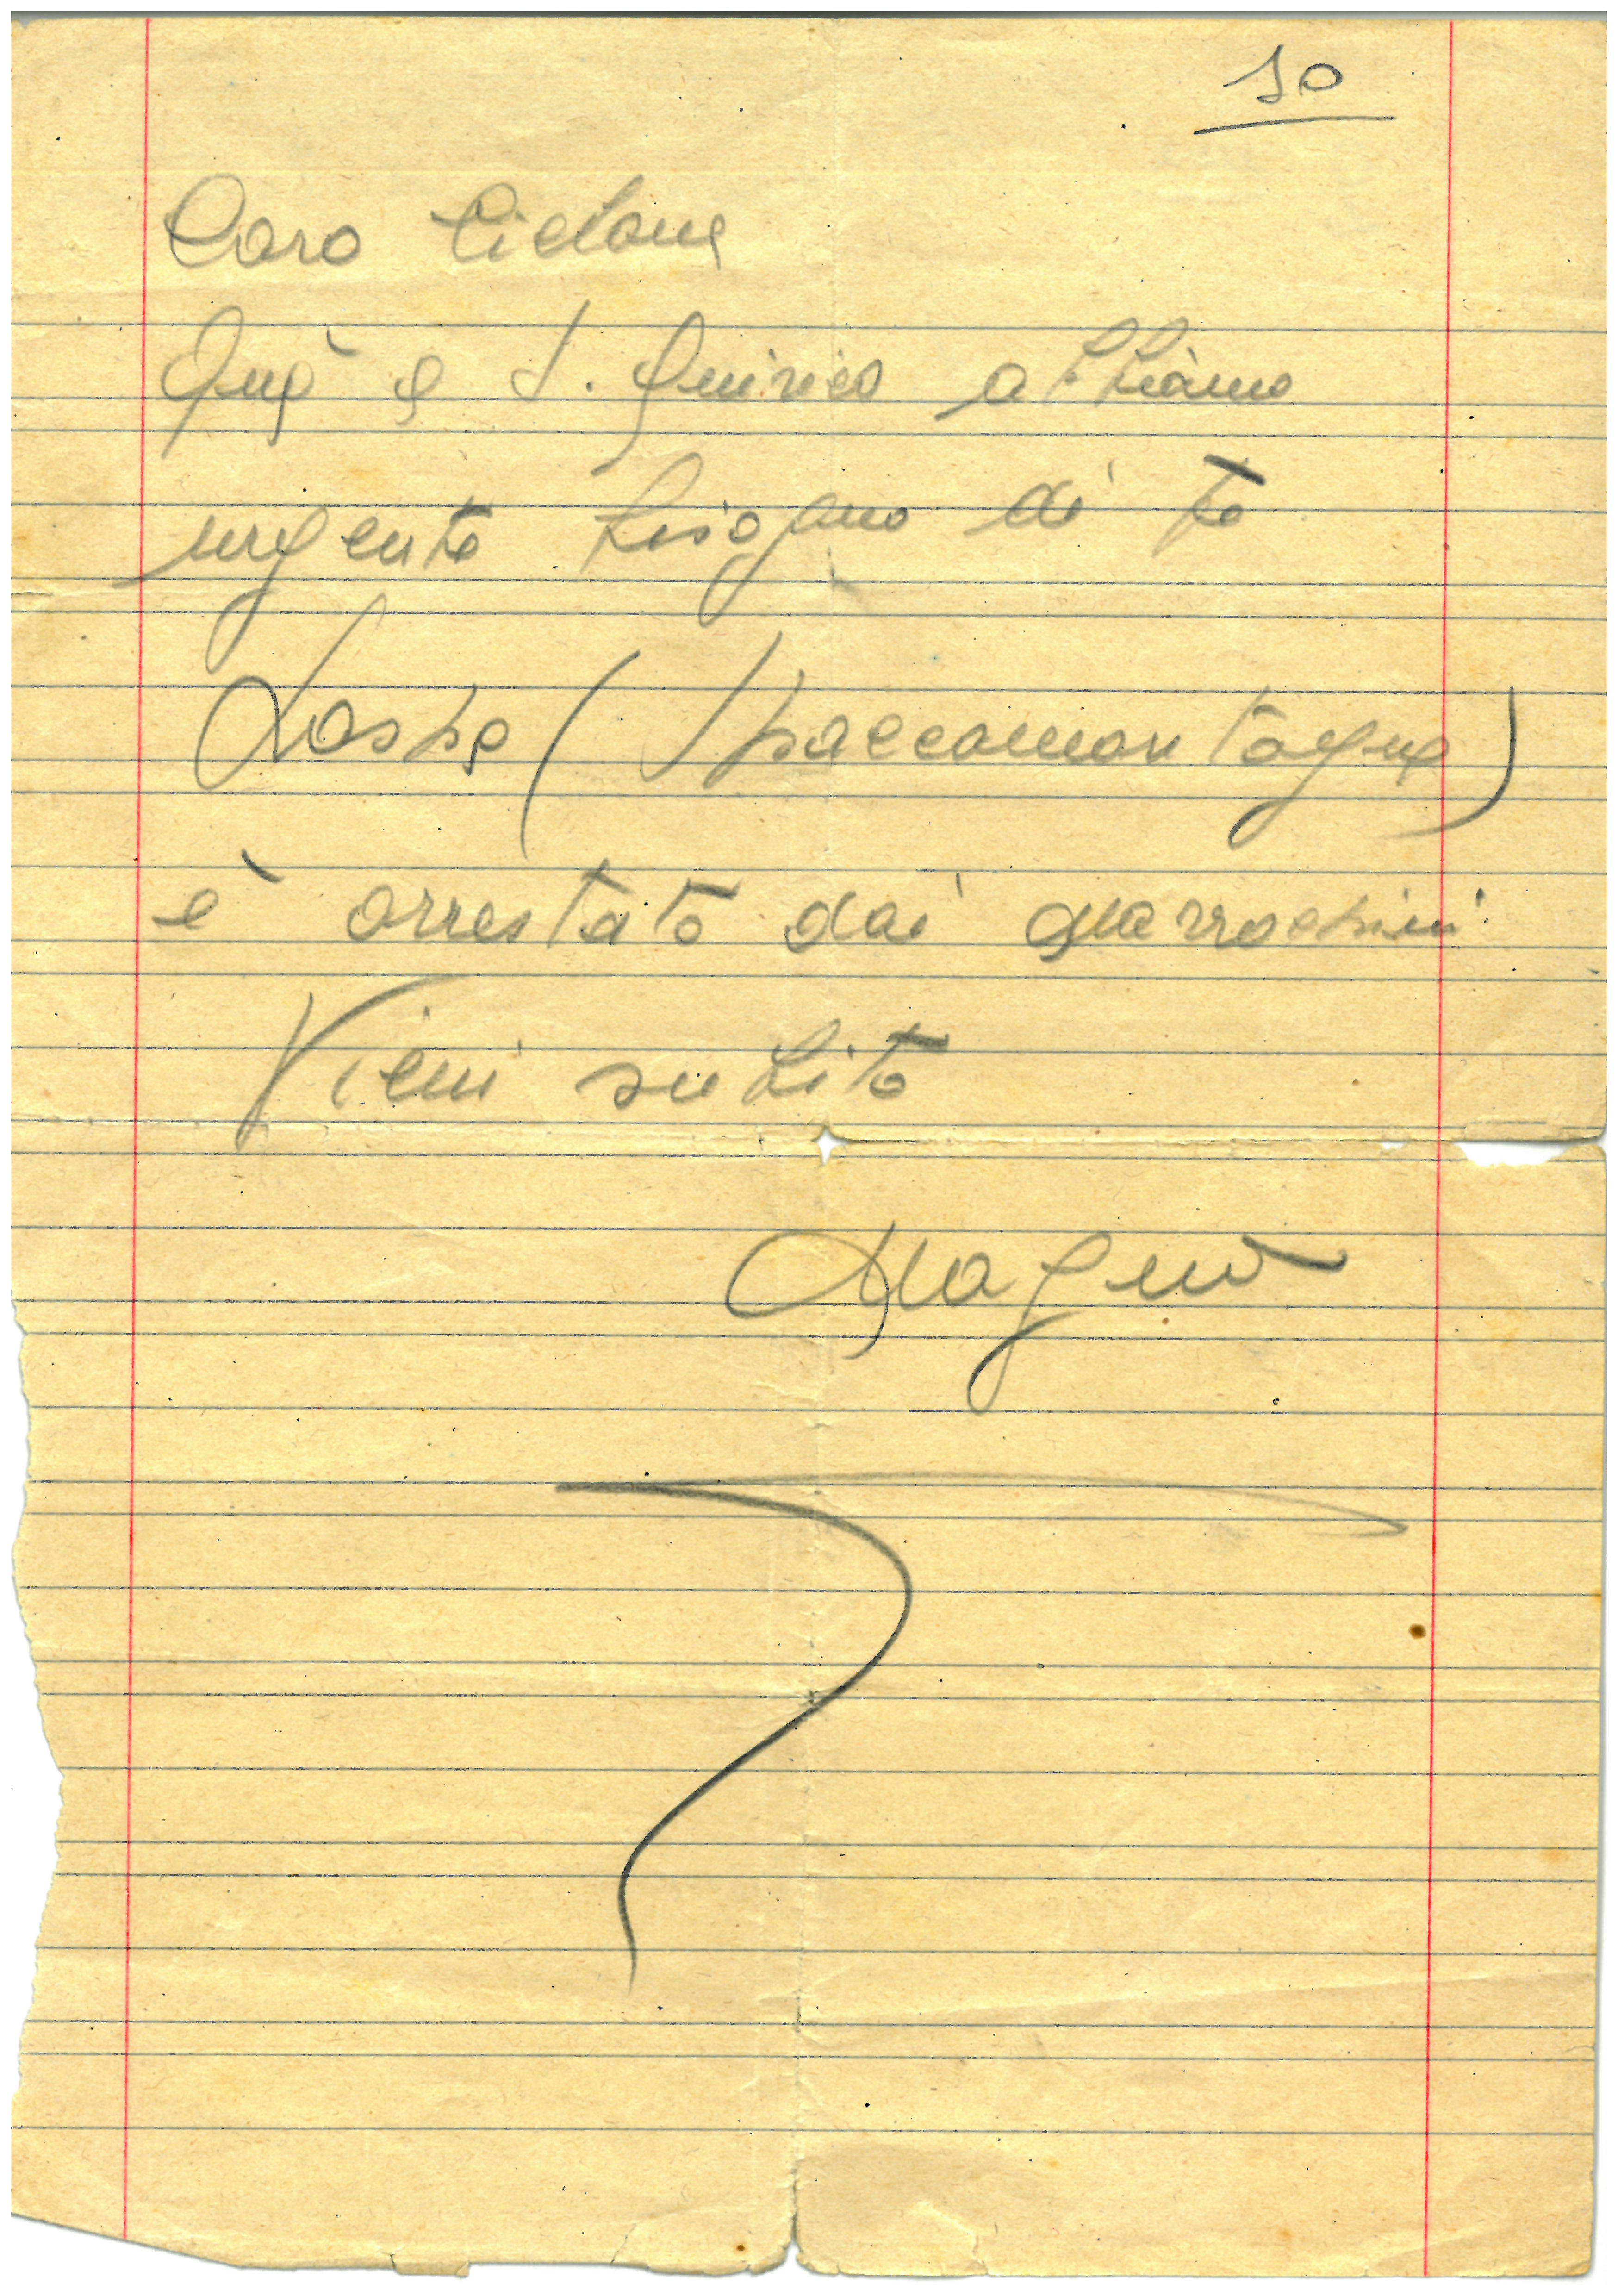 10
Caro Ciclone
Quà a S. Quirico abbiamo
urgente bisogno di te
(Spaccamontagne)
è arrestato dai Marrochini
Vieni subito
Magno